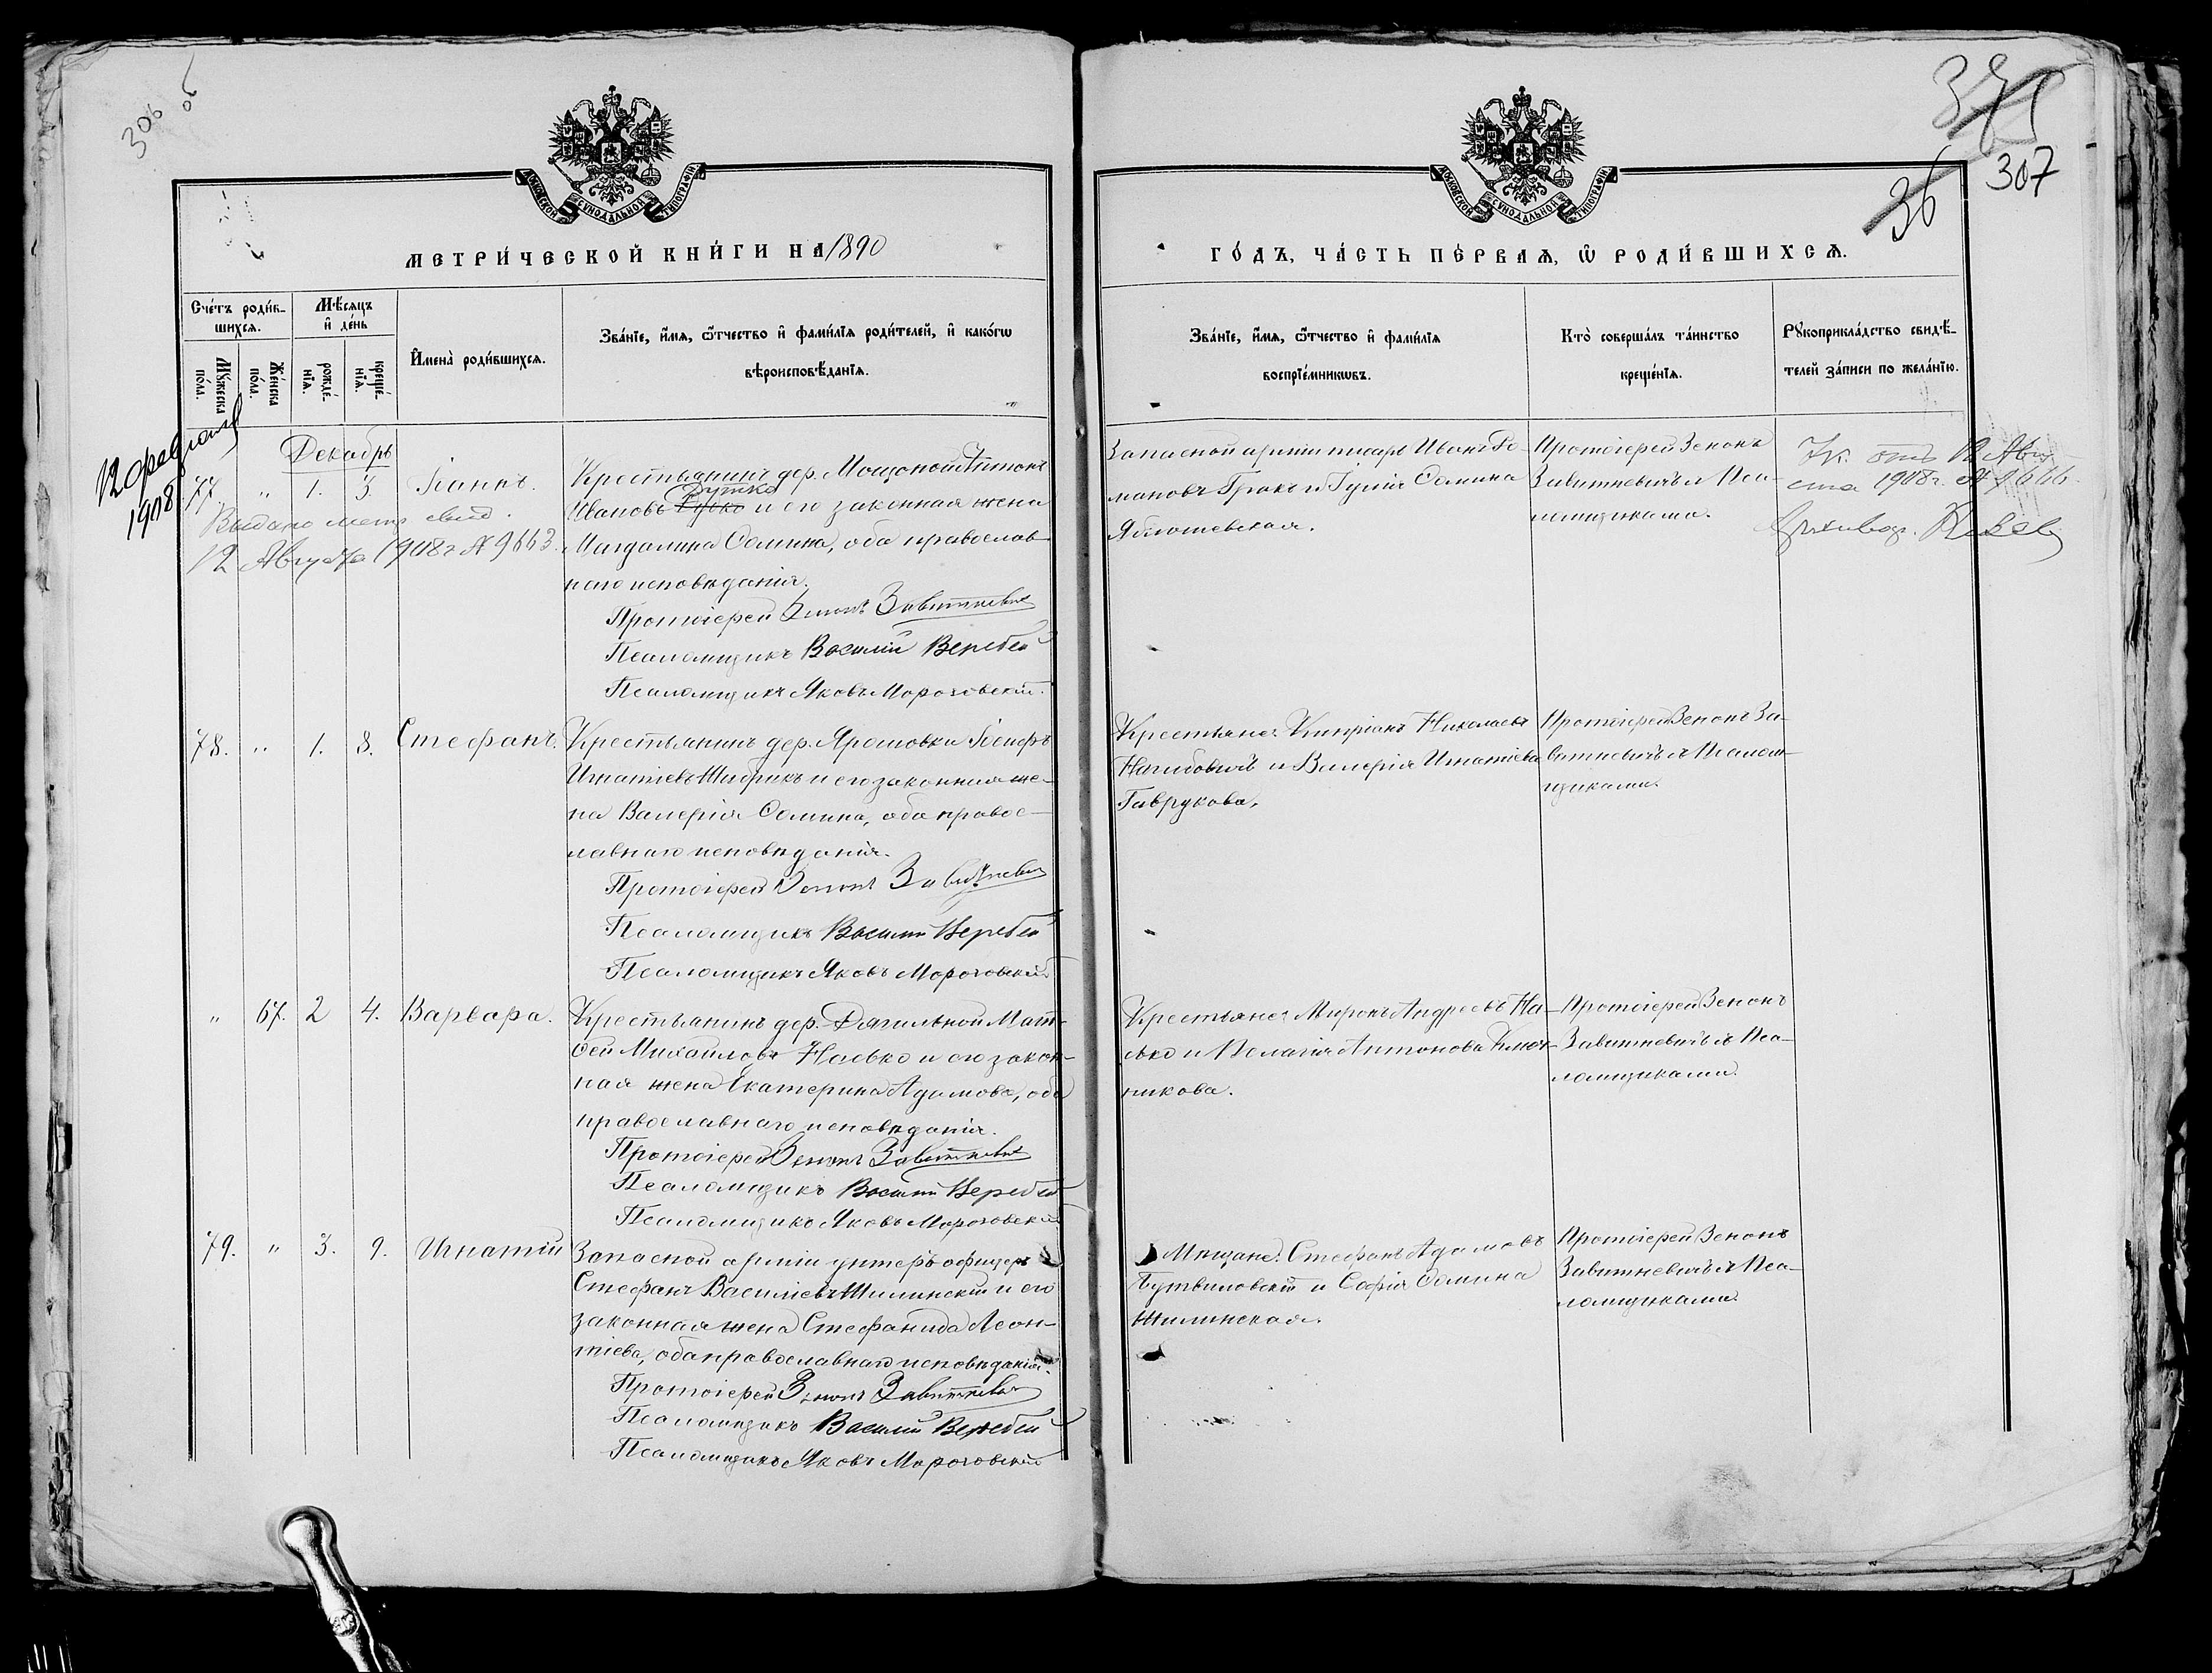 306 об
МОСКОВСКОЙ СѴНОДАЛЬНОЙ ТИПОГРАФІИ
МЕТРИ́ЧЕСКОЙ КНИ́ГИ НА 1890
Сче́тъ роди́в-
шихсѧ.
Мꙋ́жеска
по́ла.
Же́нска
по́ла.
Мѣ́сѧцъ
и҆ де́нь
рожде́-
нїѧ.
креще́-
нїѧ.
И҆мена̀ роди́вшихсѧ.
Зва́нїе, и҆́мѧ, ѻ҆́тчество и҆ фами́лїѧ роди́телей, и҆ како́гѡ
вѣроисповѣ́данїѧ.
Декабрь
12 августа
1908
77. " 1. 3. Іоаннъ.
Выдано метр свид.
12 Августа 1908 г № 9663.
Крестьянинъ дер. Мощоной Антонъ
Дутко
Ивановъ и его законная жена
Магдалина Ѳомина, оба православ-
наго исповѣданія.
Протоіерей Зенонъ Завитневичъ
Псаломщикъ Василій Веребей
Псаломщикъ Яковъ Мороховскій.
78. " 1. 8. Стефанъ.
Крестьянинъ дер. Ярошовки Іосифъ
Игнатіевъ Шабрикъ и его законная же-
на Валерія Ѳомина, оба правос-
лавнаго исповѣданія.
Протоіерей Зенонъ Завитневичъ
Псаломщикъ Василій Веребей
Псаломщикъ Яковъ Мороховскій
" 67. 2 4. Варвара.
Крестьянинъ дер. Дягильной Мат-
ѳей Михайловъ Насько и его закон-
ная жена Екатерина Адамова, оба
православнаго исповѣданія.
Протоіерей Зенонъ Завитневичъ
Псаломщикъ Василій Веребей
Псаломщикъ Яковъ Мороховскій
79. " 3. 9. Игнатій
Запасной арміи унтеръ-офицеръ
Стефанъ Василіевъ Жилинскій и его
законная жена Стефанида Леон-
тіева, оба православнаго исповѣданія.
Протоіерей Зенонъ Завитневичъ
Псаломщикъ Василій Веребей
Псаломщикъ Яковъ Мороховскій
36
307
МОСКОВСКОЙ СѴНОДАЛЬНОЙ ТИПОГРАФІИ
ГО́ДЪ, ЧА́СТЬ ПЕ́РВАѦ, Ѿ РОДИ́ВШИХСѦ.
Зва́нїе, и҆́мѧ, ѻ҆́тчество и҆ фами́лїѧ
воспрїе́мникѡвъ.
Кто̀ соверша́лъ та́инство
креще́нїѧ.
Рꙋкоприкла́дство свидѣ́-
телей за́писи по жела́нїю.
Запасной арміи писарь Иванъ Ро-
мановъ Гракъ и Іулія Ѳомина
Яблошевская.
Протоіерей Зенонъ
Завитневичъ съ Пса-
ломщиками.
Ук. отъ 12 Авгу-
ста 1908 г. № 9666.
Архивар.
Крестьяне: Кипріанъ Николаевъ
Нагибовичъ и Валерія Игнатіева
Гаврукова.
Протоіерей Зенонъ За-
витневичъ съ Псалом-
щиками.
Крестьяне: Миронъ Андреевъ На-
сько и Пелагія Антонова Ключ-
никова.
Протоіерей Зенонъ
Завитневичъ съ Пса-
ломщиками.
Мѣщане: Стефанъ Адамовъ
Бутвиловскій и Софія Ѳомина
Жилинская.
Протоіерей Зенонъ
Завитневичъ съ Пса-
ломщиками.